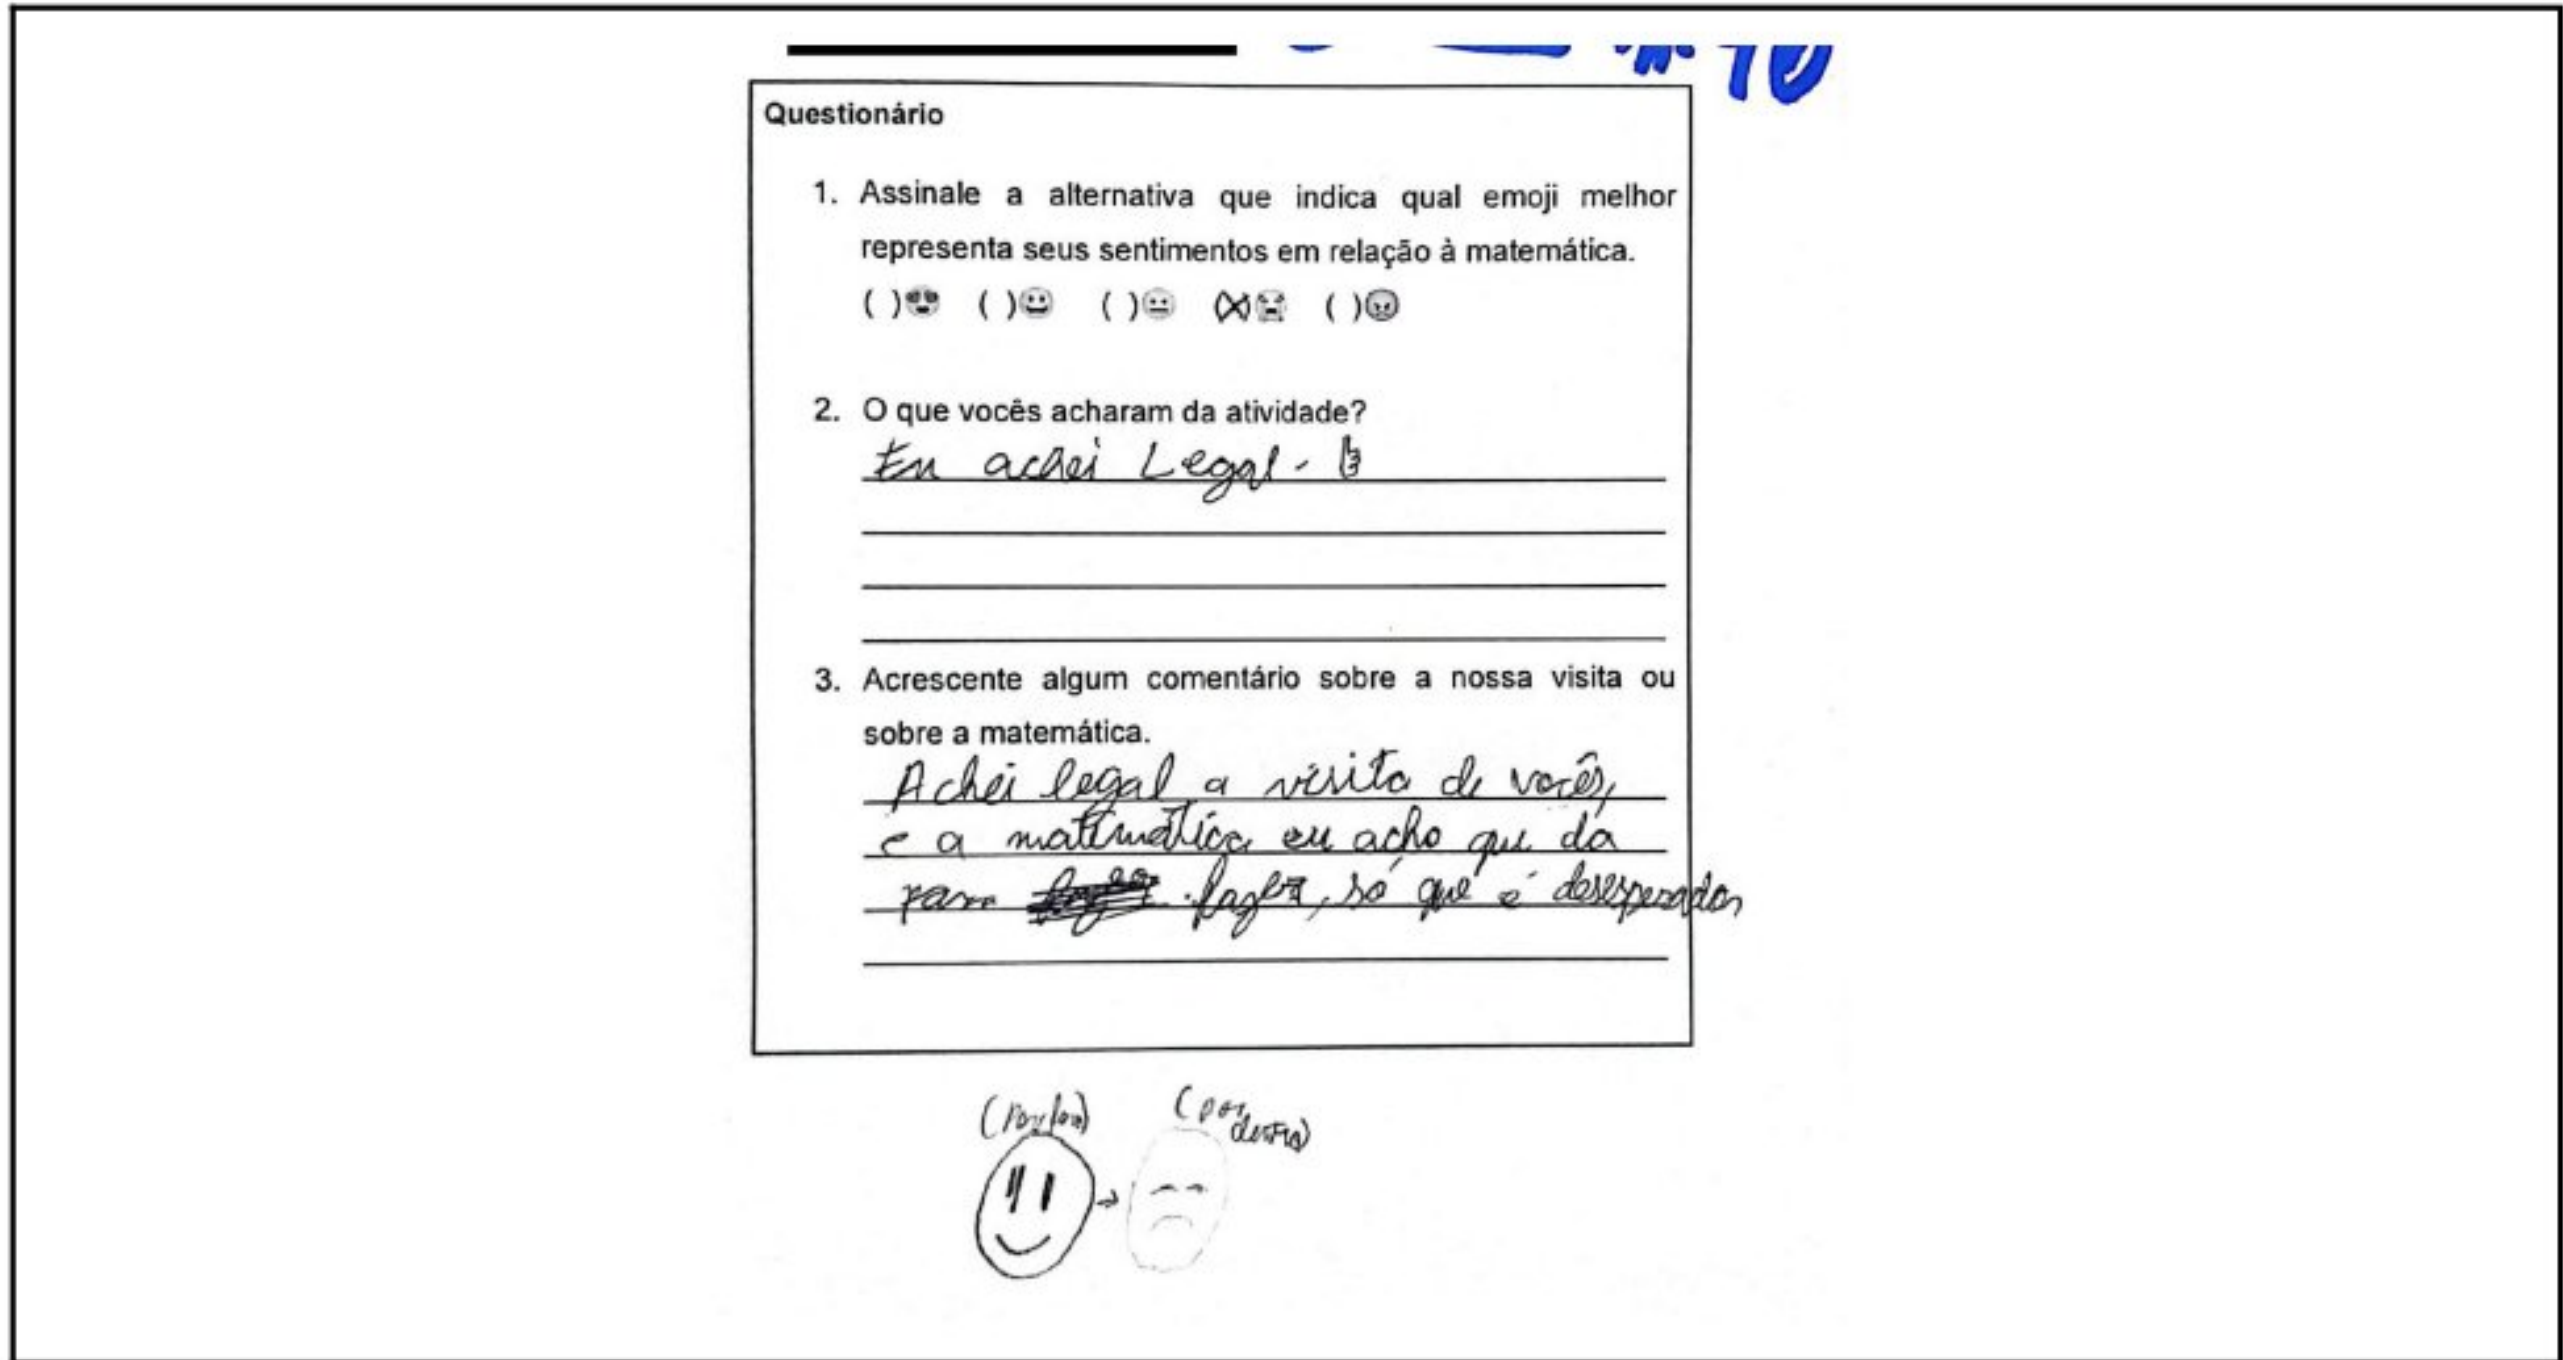 Questionário
1. Assinale a alternativa que indica qual emoji melhor
representa seus sentimentos em relação à matemática.
( )😍 ( )😀 ( )😐 (X)😭 ( )😡
2. O que vocês acharam da atividade?
Eu achei Legal. 👍
3. Acrescente algum comentário sobre a nossa visita ou
sobre a matemática.
Achei legal a visita de vocês,
e a matemática eu acho que dá
para fazer, só que é desesperador
(Por fora)
(por
dentro)